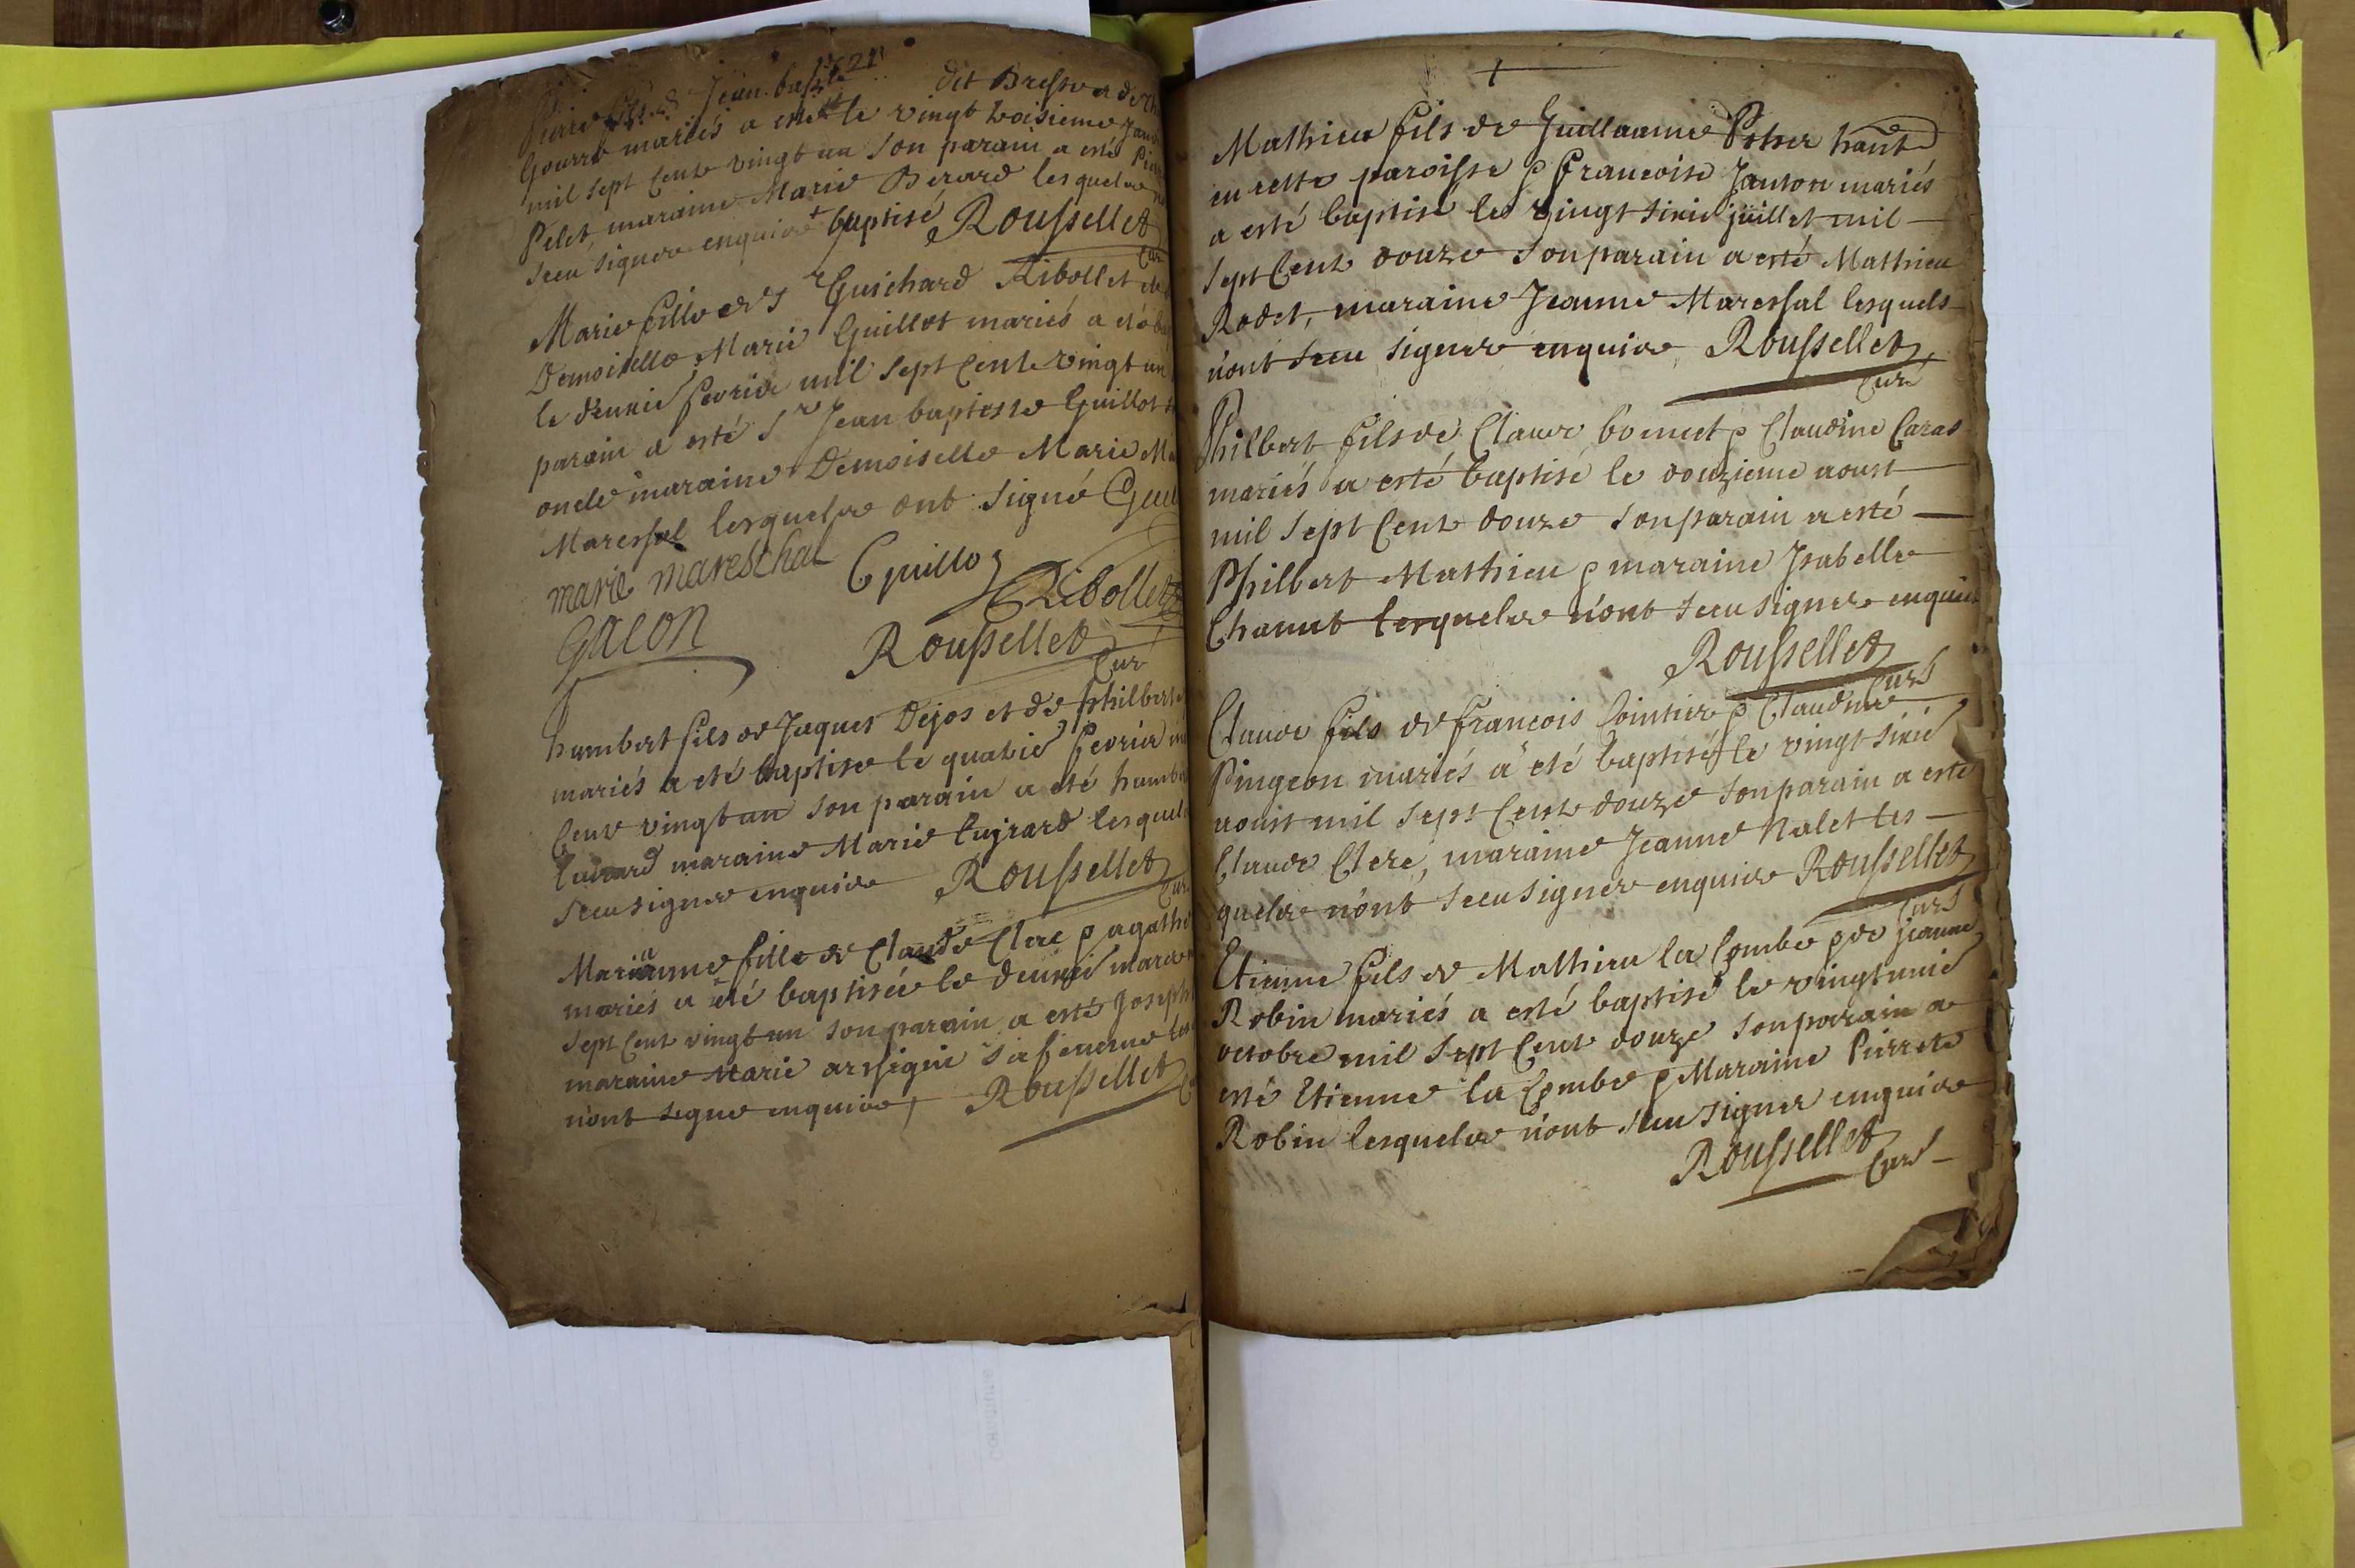 1721
Pierre fils de Jean baptiste dit Bresson et de
Gourre mariés a esté le vingt troisieme Janv
mil sept Cents vingt un son parain a esté Pier
Pelet, maraine Marie Berard lesquels
sceu signer enquis + baptisé Roussellet
Curé
Marie fille de Sr Guichard Ribollet et de
Demoiselle Marie Guillot mariés a été ba
le deuxie fevrier mil sept Cents vingt un
parain a esté Sr Jean baptiste Guillot
oncle maraine Demoiselle Marie Ma
Maressal lesquels ont signé
marie mareschal Guillot
Ribollet
Gacon Roussellet
Curé
humbert fils de Jaques Dejos et de philbert
mariés a eté baptise le quatrie fevrier mi
Cents vingt un son parain a eté humb
maraine Marie Cuyrard lesquel
sceu signer enquis Roussellet
Curé
Marianne fille de Claude Clerc & agathe
mariés a eté baptisée le deuxie mars
sept Cent vingt un son parain a esté Joseph
maraine Marie sa femme les
n'ont signe enquis, Roussellet
Mathieu fils de Guillaume hant
en cette paroisse & francoise Janton mariés
a esté baptisé le vingt sixie juillet mil
sept Cents douze son parain a esté Mathieu
Rodet, maraine Jeanne Maressal lesquels
n'ont sceu signer enquis Roussellet
Curé
Philbert fils de Claude bonnet & Claudine Caras
mariés a esté baptisé le douzieme aoust
mil sept Cents douze son parain a esté
Philbert Mathieu & maraine Isabelle
Chanut lesquels n'ont sceu signer enquis
Roussellet
Curé
Claude fils de francois Cointier & Claudine
Pingeon mariés a eté baptisé le vingt sixie
aoust mil sept Cents douze son parain a esté
Claude Clere, maraine Jeanne Nalet les
quels n'ont sceu signer enquis Roussellet
Curé
Etienne fils de Mathieu la Combe & de jeanne
Robin mariés a esté baptisé le vingt unie
octobre mil sept Cent douze son parain a
esté Etienne la Combe & Maraine Pierrete
Robin lesquels n'ont sceu signer enquis
Roussellet
Curé